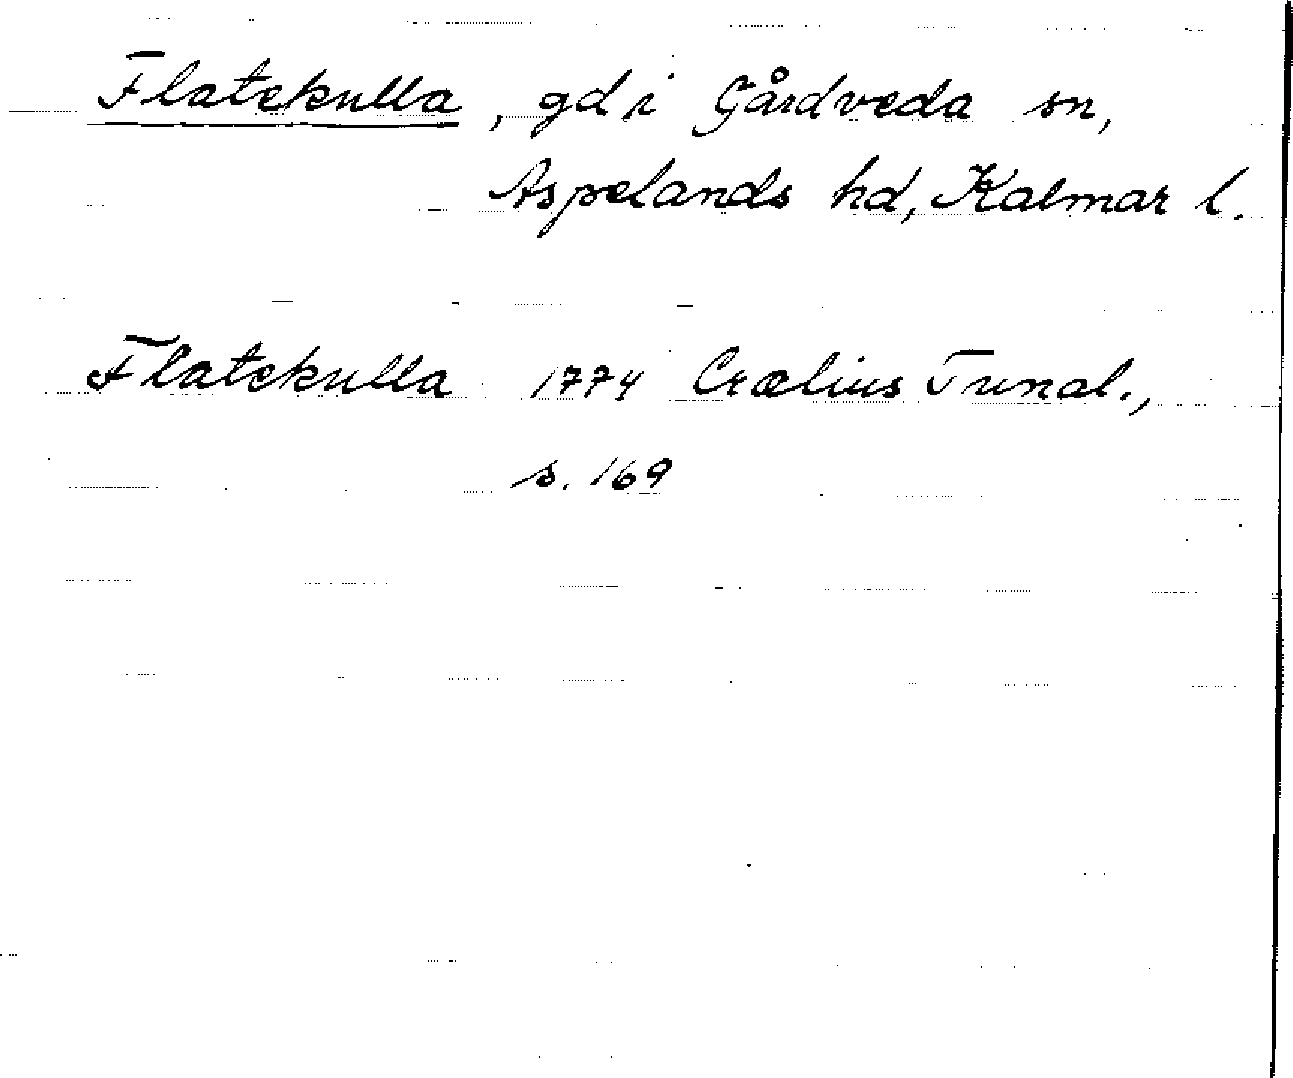 Flatekulla, gd i Gårdveda sn,
Aspelands hd, Kalmar l.
Flatekulla 1774 Crælius Tunal.,
s. 169